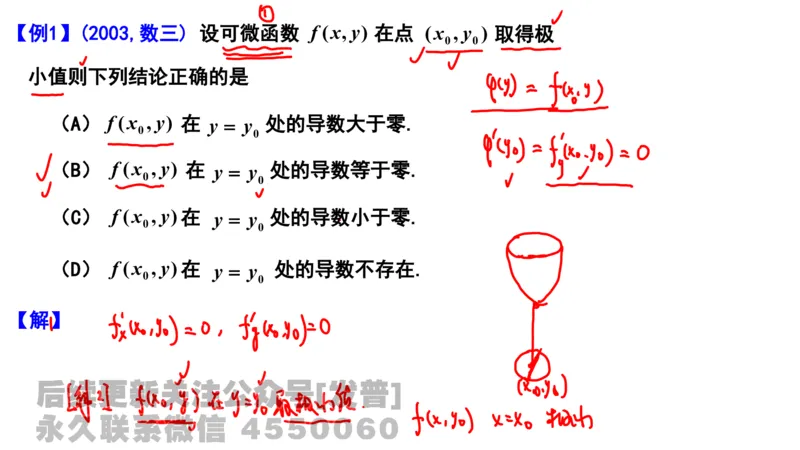 ①
【例1】(2003,数三) 设可微函数 f(x,y) 在点 (x₀,y₀) 取得极
小值则下列结论正确的是
(A) f(x₀,y) 在 y = y₀ 处的导数大于零.
(B) f(x₀,y) 在 y = y₀ 处的导数等于零.
(C) f(x₀,y) 在 y = y₀ 处的导数小于零.
(D) f(x₀,y) 在 y = y₀ 处的导数不存在.
φ(y) = f(x₀,y)
φ'(y₀) = f'y(x₀,y₀) = 0
(x₀,y₀)
【解1】 f'x(x₀,y₀) = 0, f'y(x₀,y₀) = 0
[解2] f(x₀,y) 在 y=y₀ 取极小值.
f(x,y₀) x=x₀ 极小
后续更新关注公众号[发普]
永久联系微信 4550060